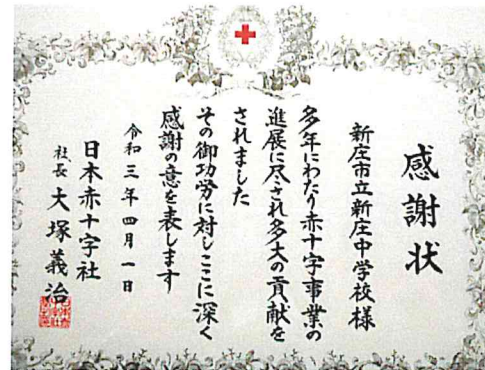 感謝状
新庄市立新庄中学校様
多年にわたり赤十字事業の
進展に尽され多大の貢献を
されました
その御功労に対しここに深く
感謝の意を表します
令和三年四月一日
日本赤十字社
社長 大塚義治